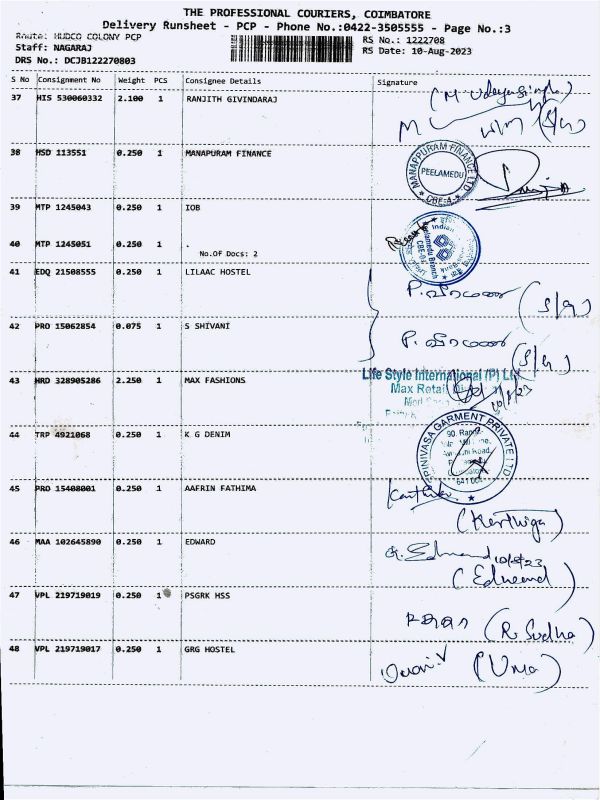 THE PROFESSIONAL COURIERS, COIMBATORE
Delivery Runsheet - PCP - Phone No.:0422-3505555 - Page No.:3
Route: HUDCO COLONY PCP
RS No.: 1222708
Staff: NAGARAJ
RS Date: 10-Aug-2023
DRS No.: DCJB122270803
S No Consignment No Weight PCS Consignee Details Signature
37 HIS 530060332 2.100 1 RANJITH GIVINDARAJ
38 HSD 113551 0.250 1 MANAPURAM FINANCE
MANAPPURAM FINANCE LTD
PEELAMEDU
CBE-4
39 MTP 1245043 0.250 1 IOB
40 MTP 1245051 0.250 1 .
No.Of Docs: 2
41 EDQ 21508555 0.250 1 LILAAC HOSTEL
42 PRO 15062854 0.075 1 S SHIVANI
Life Style International (P) Lt
Max Retail
43 HRD 328905286 2.250 1 MAX FASHIONS
10/8/23
SPINIVASA GARMENT PRIVATE LTD
44 TRP 4921068 0.250 1 K G DENIM
641 004
45 PRO 15408001 0.250 1 AAFRIN FATHIMA
(Kerthiga)
46 MAA 102645890 0.250 1 EDWARD
10/8/23
47 VPL 219719019 0.250 1 PSGRK HSS
(R. Sudha)
48 VPL 219719017 0.250 1 GRG HOSTEL
(Uma)